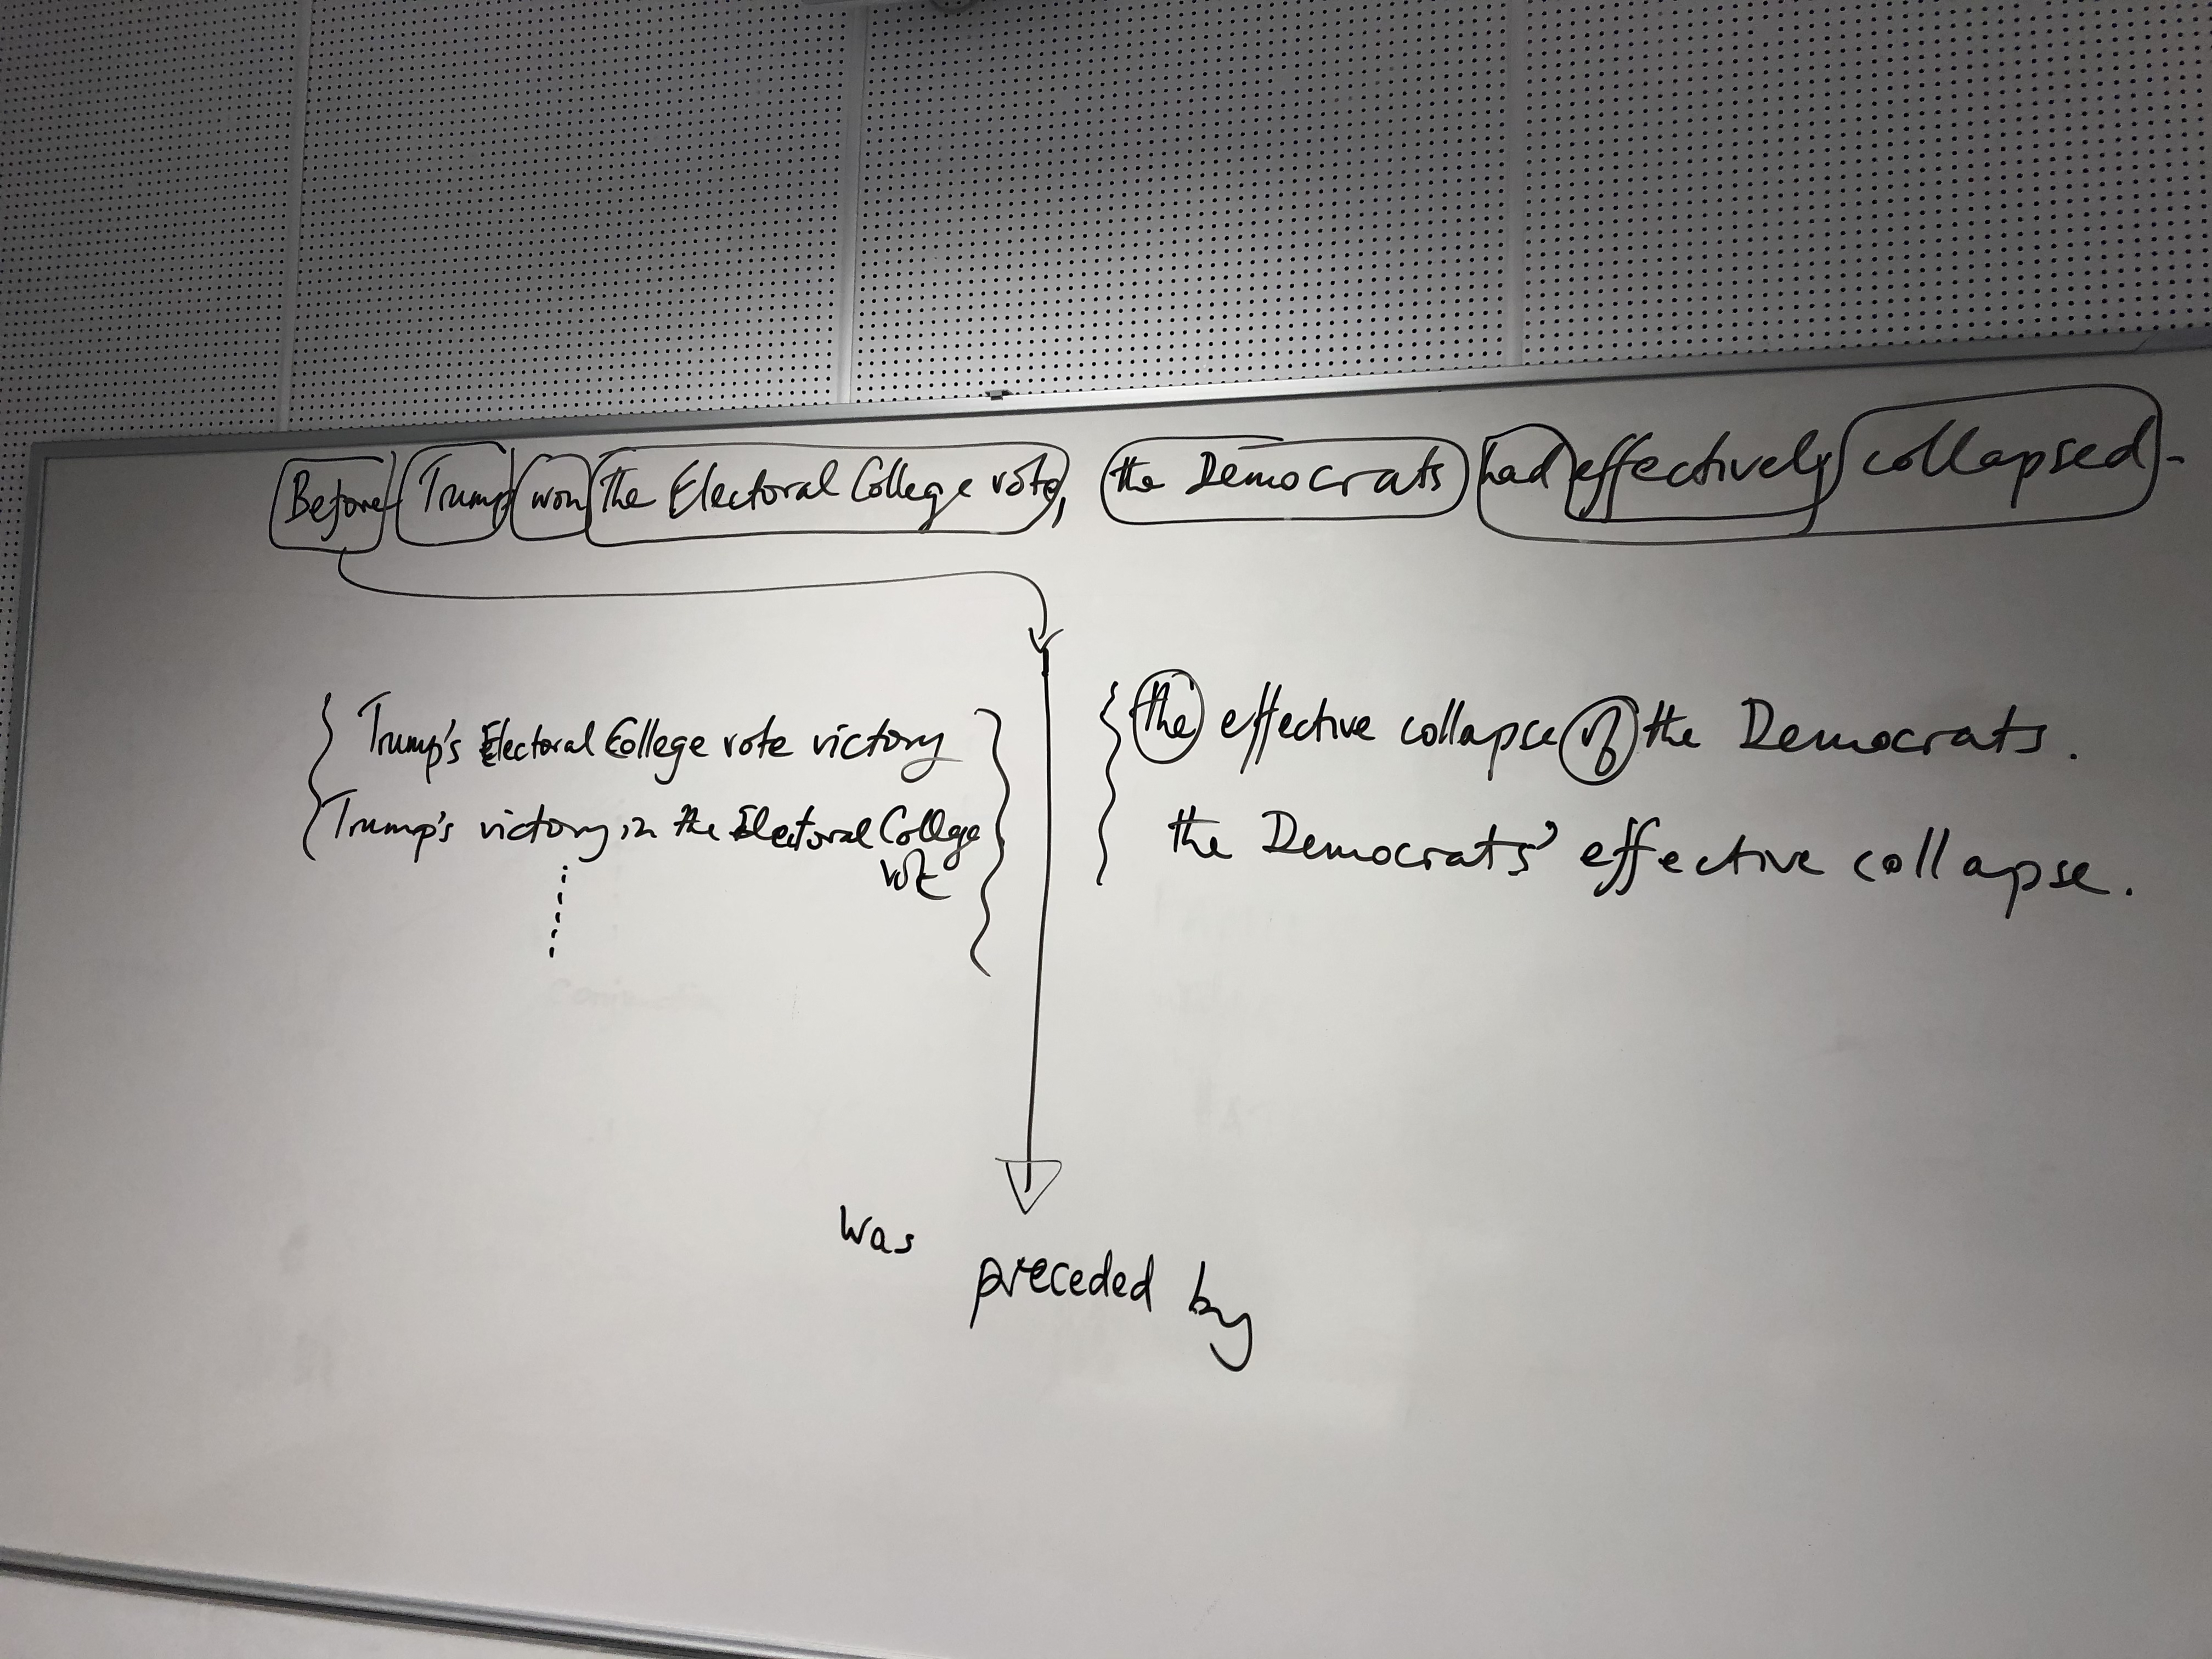 Before Trump won the Electoral College vote, the Democrats had effectively collapsed.
Trump's Electoral College vote victory
Trump's victory in the Electoral College
vote
the effective collapse of the Democrats.
the Democrats' effective collapse.
was preceded by